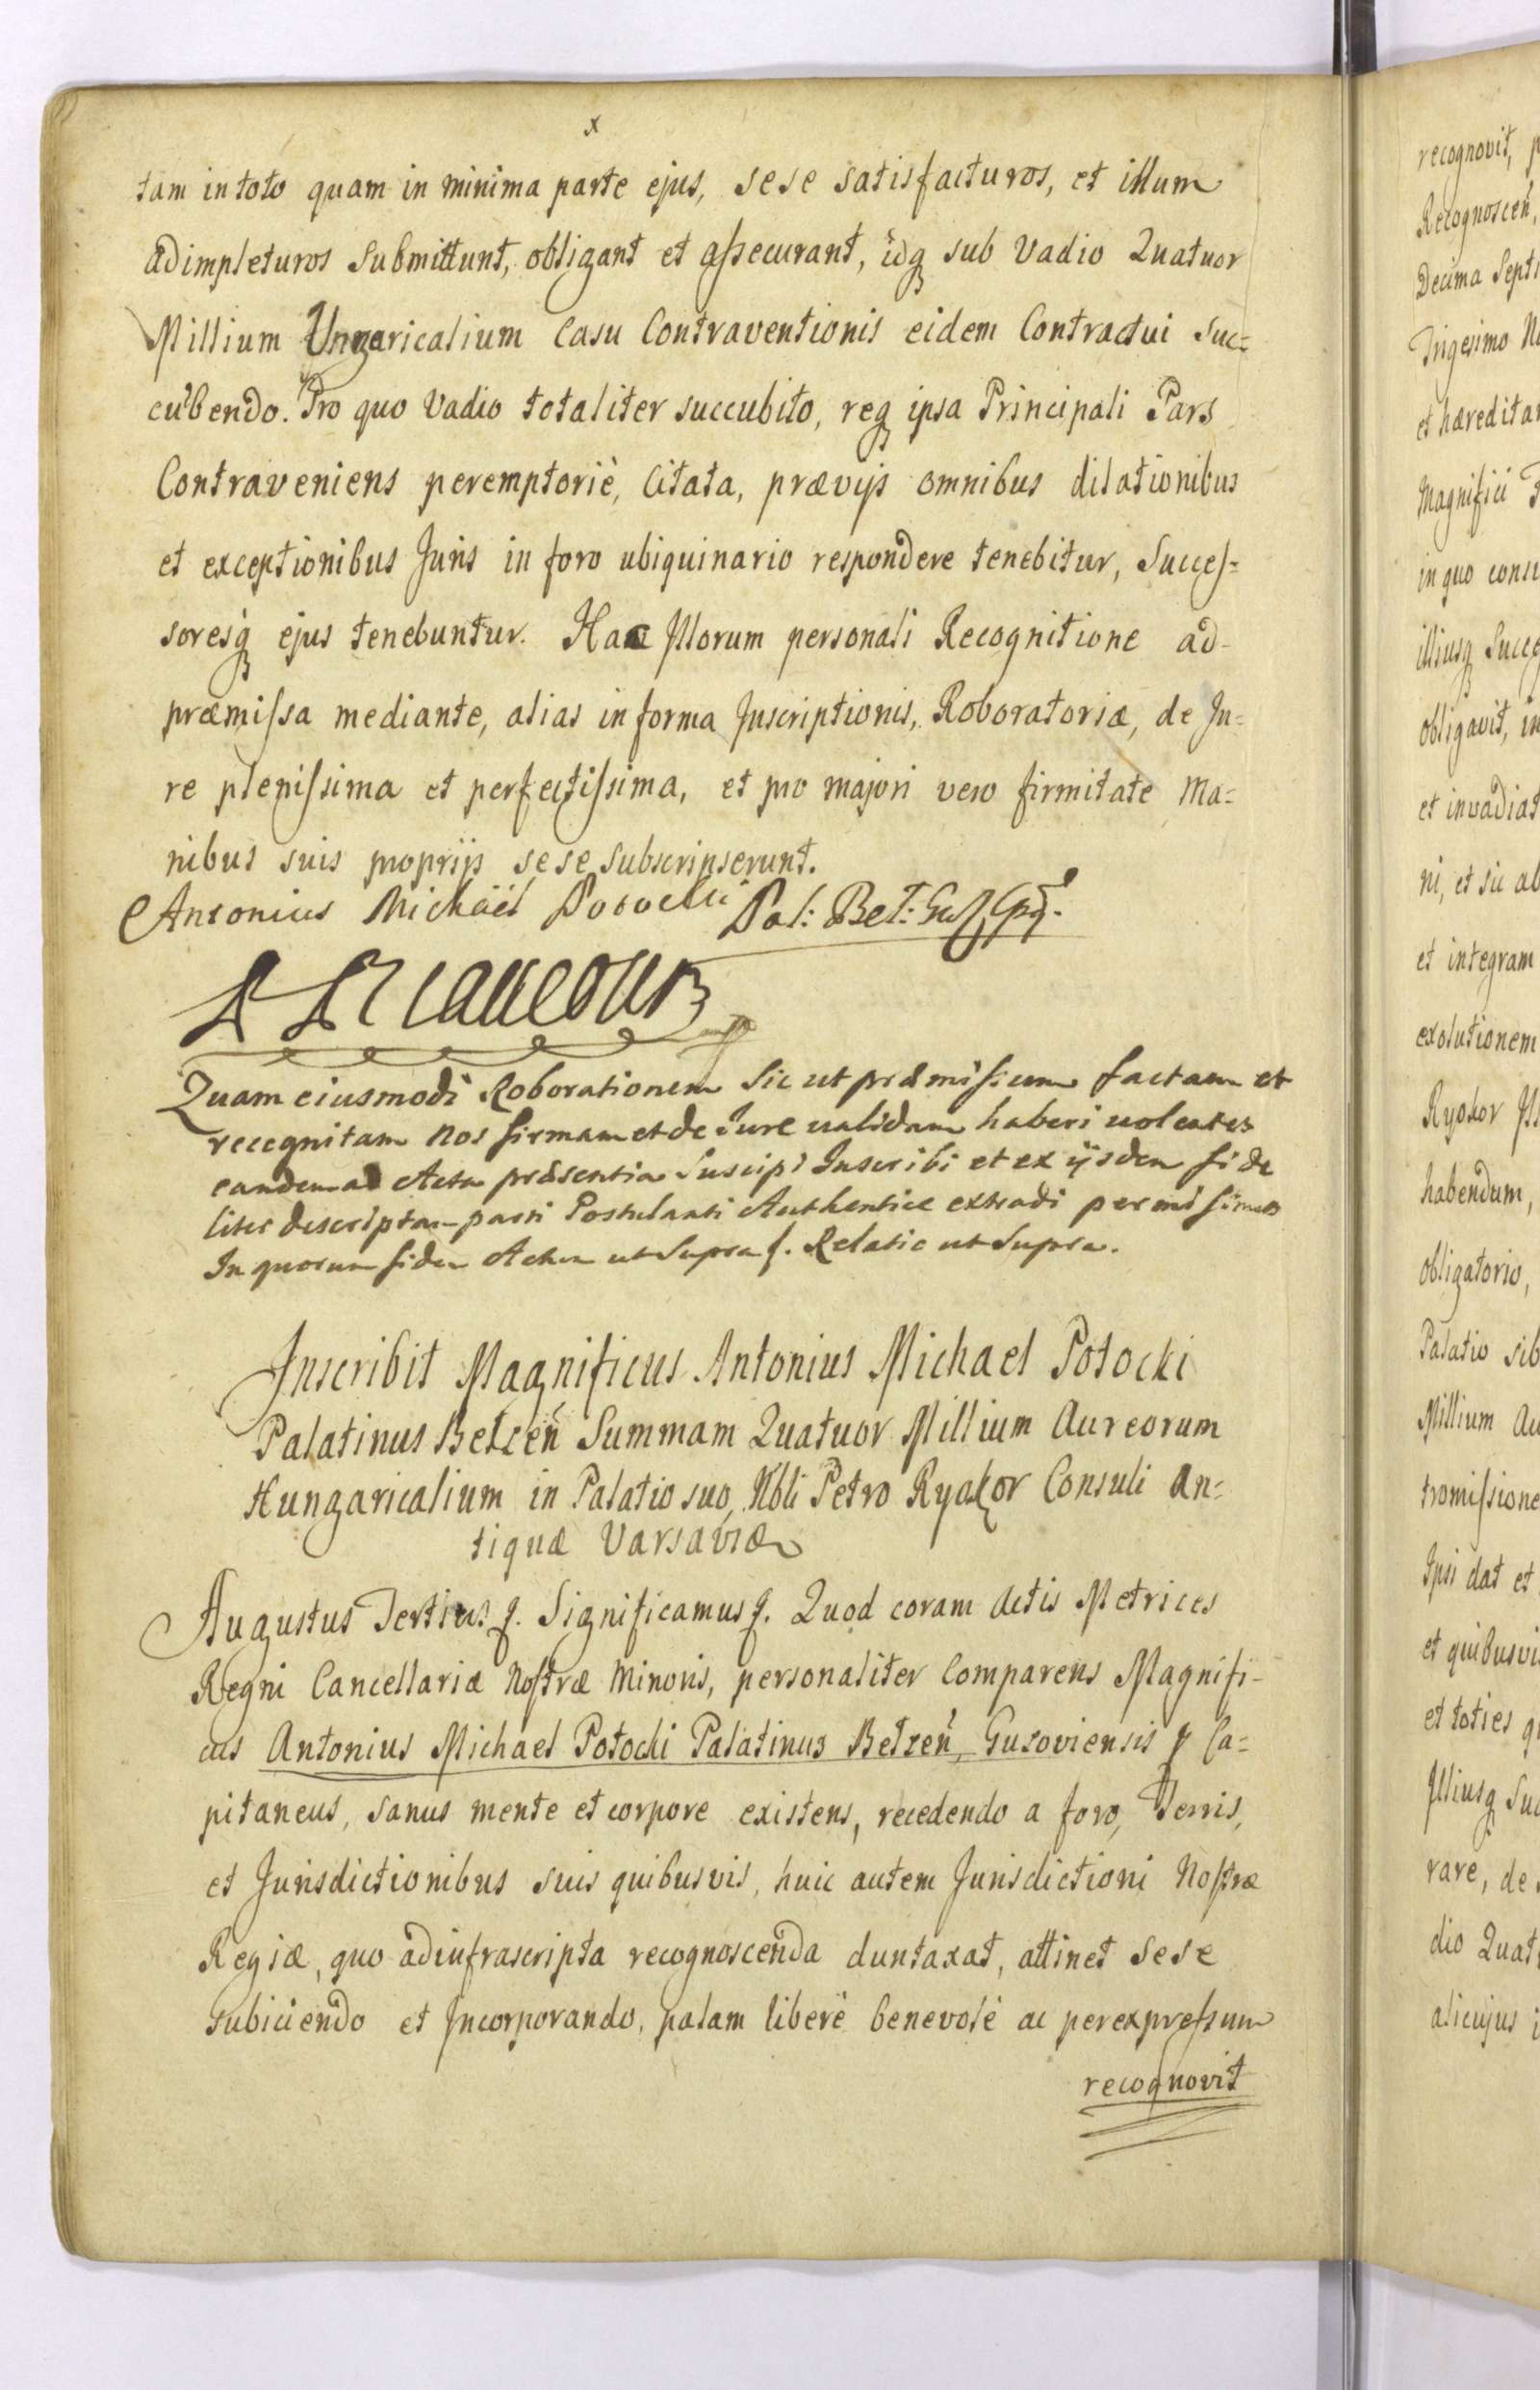 x
tam in toto quam in minima parte ejus, sese satisfacturos, et illum
adimpleturos Submittunt, obligant et assecurant, idq sub Vadio Quatuor
Millium Ungaricalium Casu Contraventionis eidem Contractui suc=
cubendo. Pro quo Vadio totaliter succubito, req ipsa Principali Pars
Contraveniens peremptoriè, Citata, prævijs omnibus dilationibus
et exceptionibus Juris in foro ubiquinario respondere tenebitur, Succes=
soresq ejus tenebuntur. Hac Illorum personali Recognitione ad
præmissa mediante, alias in forma Inscriptionis, Roboratoriæ, de Ju=
re plenissima et perfectissima, et pro majori vero firmitate Ma=
nibus suis proprijs sese subscripserunt.
Antonius Michaël Potocki Pal: Bel:
Quam eiusmodi Roborationem Sic ut præmissum factam et
recognitam Nos firmam et de Jure validam haberi volentes
eandem ad Acta præsentia Suscipi Inscribi et ex ijsdem fide
liter descriptam parti Postulanti Authentice extradi permisimus
In quorum fidem Actum ut Supra f. Relatio ut Supra.
Inscribit Magnificus Antonius Michael Potocki
Palatinus Belzeñ Summam Quatuor Millium Aureorum
Hungaricalium in Palatio suo, Nbli Petro Ryakor Consuli An=
tiquæ Varsaviæ
Augustus Tertius f. Significamus f. Quod coram Actis Metrices
Regni Cancellariæ Nostræ Minoris, personaliter Comparens Magnifi-
cus Antonius Michael Potocki Palatinus Belzeñ, Guzoviensis p Ca=
pitaneus, sanus mente et corpore existens, recedendo a foro, Terris,
et Jurisdictionibus suis quibusvis, huic autem Jurisdictioni Nostræ
Regiæ, quo ad infrascripta recognoscenda duntaxat, attinet sese
subiciendo et Incorporando, palam liberè benevolè ac per expressum
recognovit
recognovit,
Recognosceñ,
Decima Septi
Trigesimo No
et hæreditar
Magnifici
in quo consi
illiusq Succe
obligavit, in
et invadiat
ni, et sic ab
et integram
exolutionem
Ryokor
habendum,
Obligatorio,
Palatio sib
Millium Au
tromissione
Ipsi dat et
et quibusvi
et toties q
Illiusq Suc
rare, de
dio Quat
alicujus i